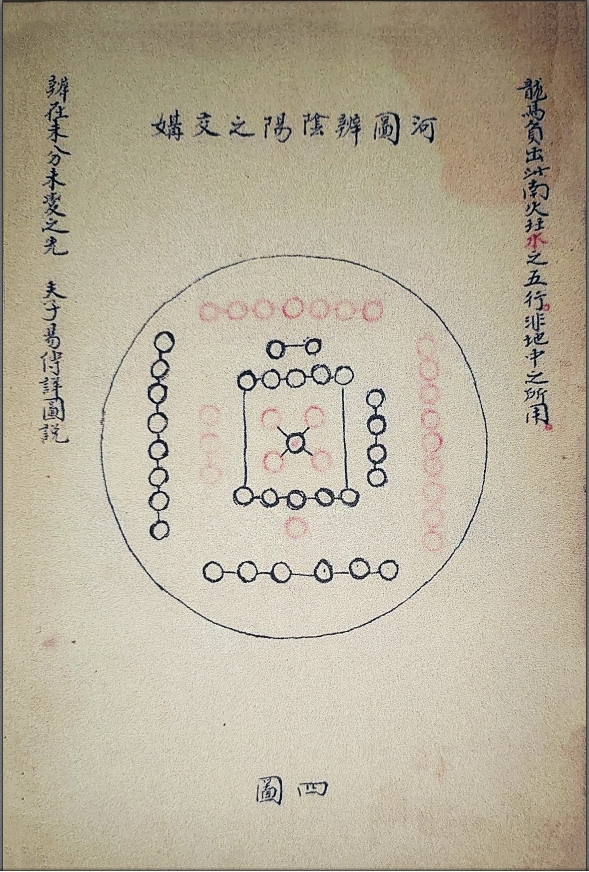 河圖辨陰陽之交媾
龍馬負出此南火水之五行非地中之所用
辨在未分未變之先 夫子易傳詳圖説
四圖